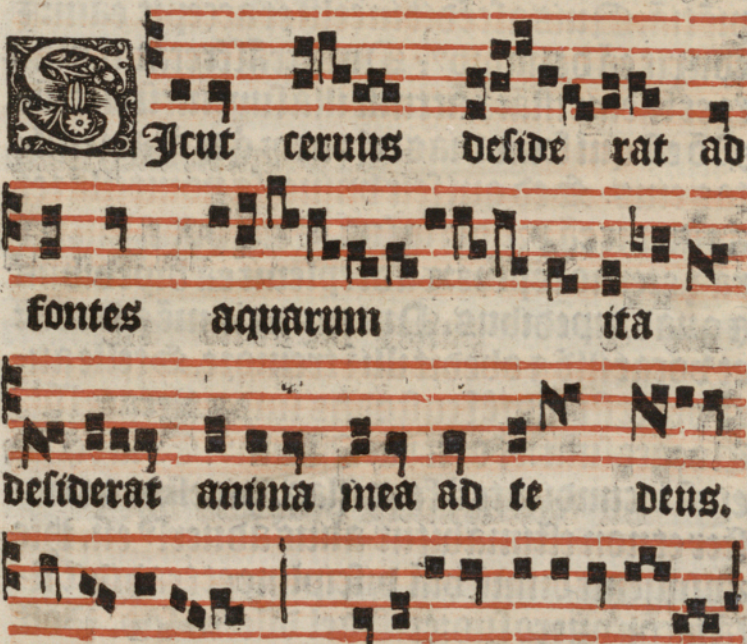 SIcut ceruus deside rat ad
fontes aquarum ita
desiderat anima mea ad te deus.